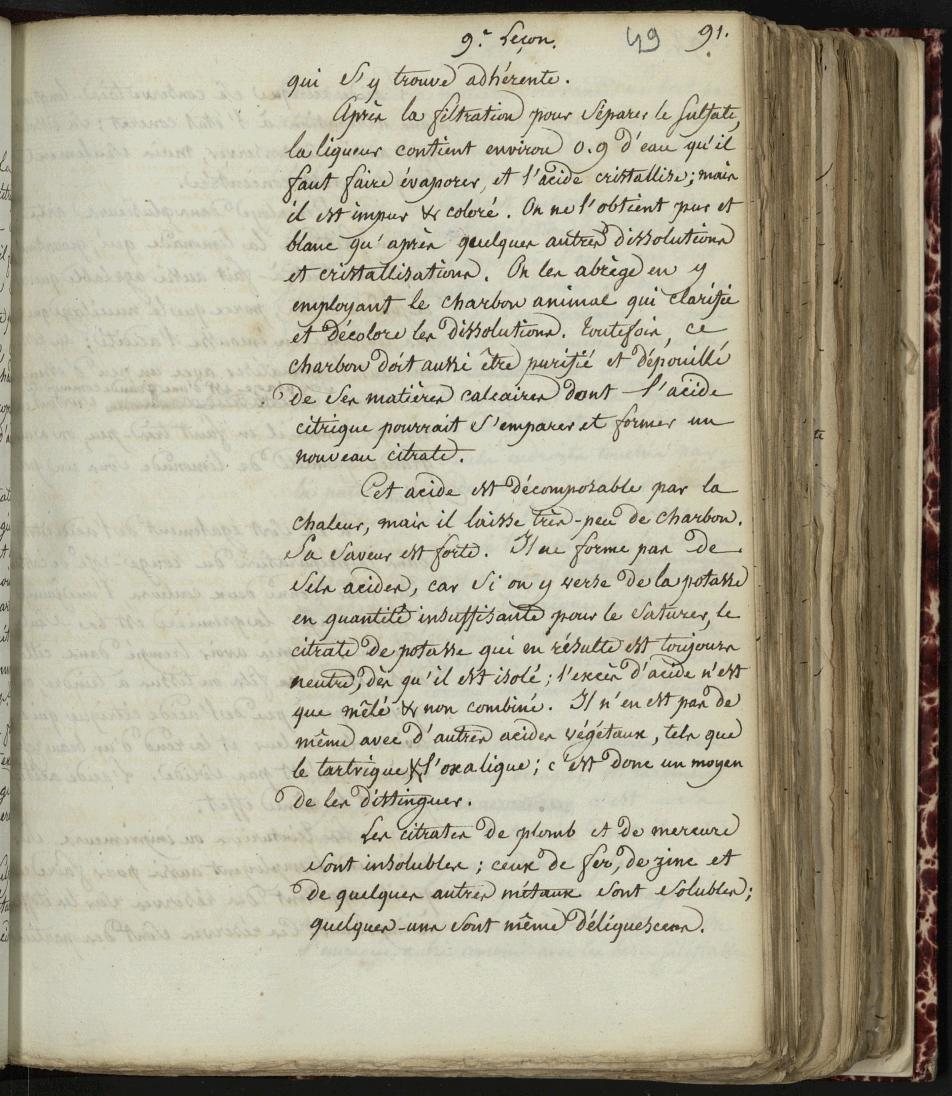 9.e Leçon. 49 91.
qui s'y trouve adhérente.
Après la filtration pour séparer le sulfate,
la liqueur contient environ 0.9 d'eau qu'il
faut faire évaporer, et l'acide cristallise; mais
il est impur & coloré. On ne l'obtient pur et
blanc qu'après quelques autres dissolutions
et cristallisations. On les abrège en y
employant le charbon animal qui clarifie
et décolore les dissolutions. Toutefois, ce
charbon doit aussi être purifié et dépouillé
de ses matières calcaires dont l'acide
citrique pourrait s'emparer et former un
nouveau citrate.
Cet acide est décomposable par la
chaleur, mais il laisse très-peu de charbon.
Sa saveur est forte. Il ne forme pas de
sels acides, car si on y verse de la potasse
en quantité insuffisante pour le saturer, le
citrate de potasse qui en résulte est toujours
neutre, dès qu'il est isolé; l'excès d'acide n'est
que mêlé & non combiné. Il n'en est pas de
même avec d'autres acides végétaux, tels que
le tartrique & l'oxalique; c'est donc un moyen
de les distinguer.
Les citrates de plomb et de mercure
sont insolubles; ceux de fer, de zinc et
de quelques autres métaux sont solubles;
quelques-uns sont même déliquescens.